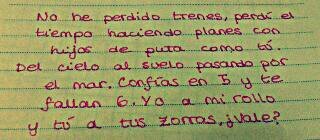 No he perdido trenes, perdí el
tiempo haciendo planes con
hijos de puta como tú.
Del cielo al suelo pasando por
el mar. Confías en 5 y te
fallan 6. Yo a mi rollo
y tú a tus zorras, ¿vale?